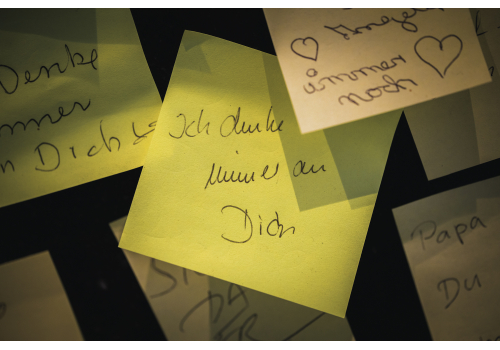 Denke
immer
an Dich
Ich denke
immer an
Dich
immer
noch
Papa
Du